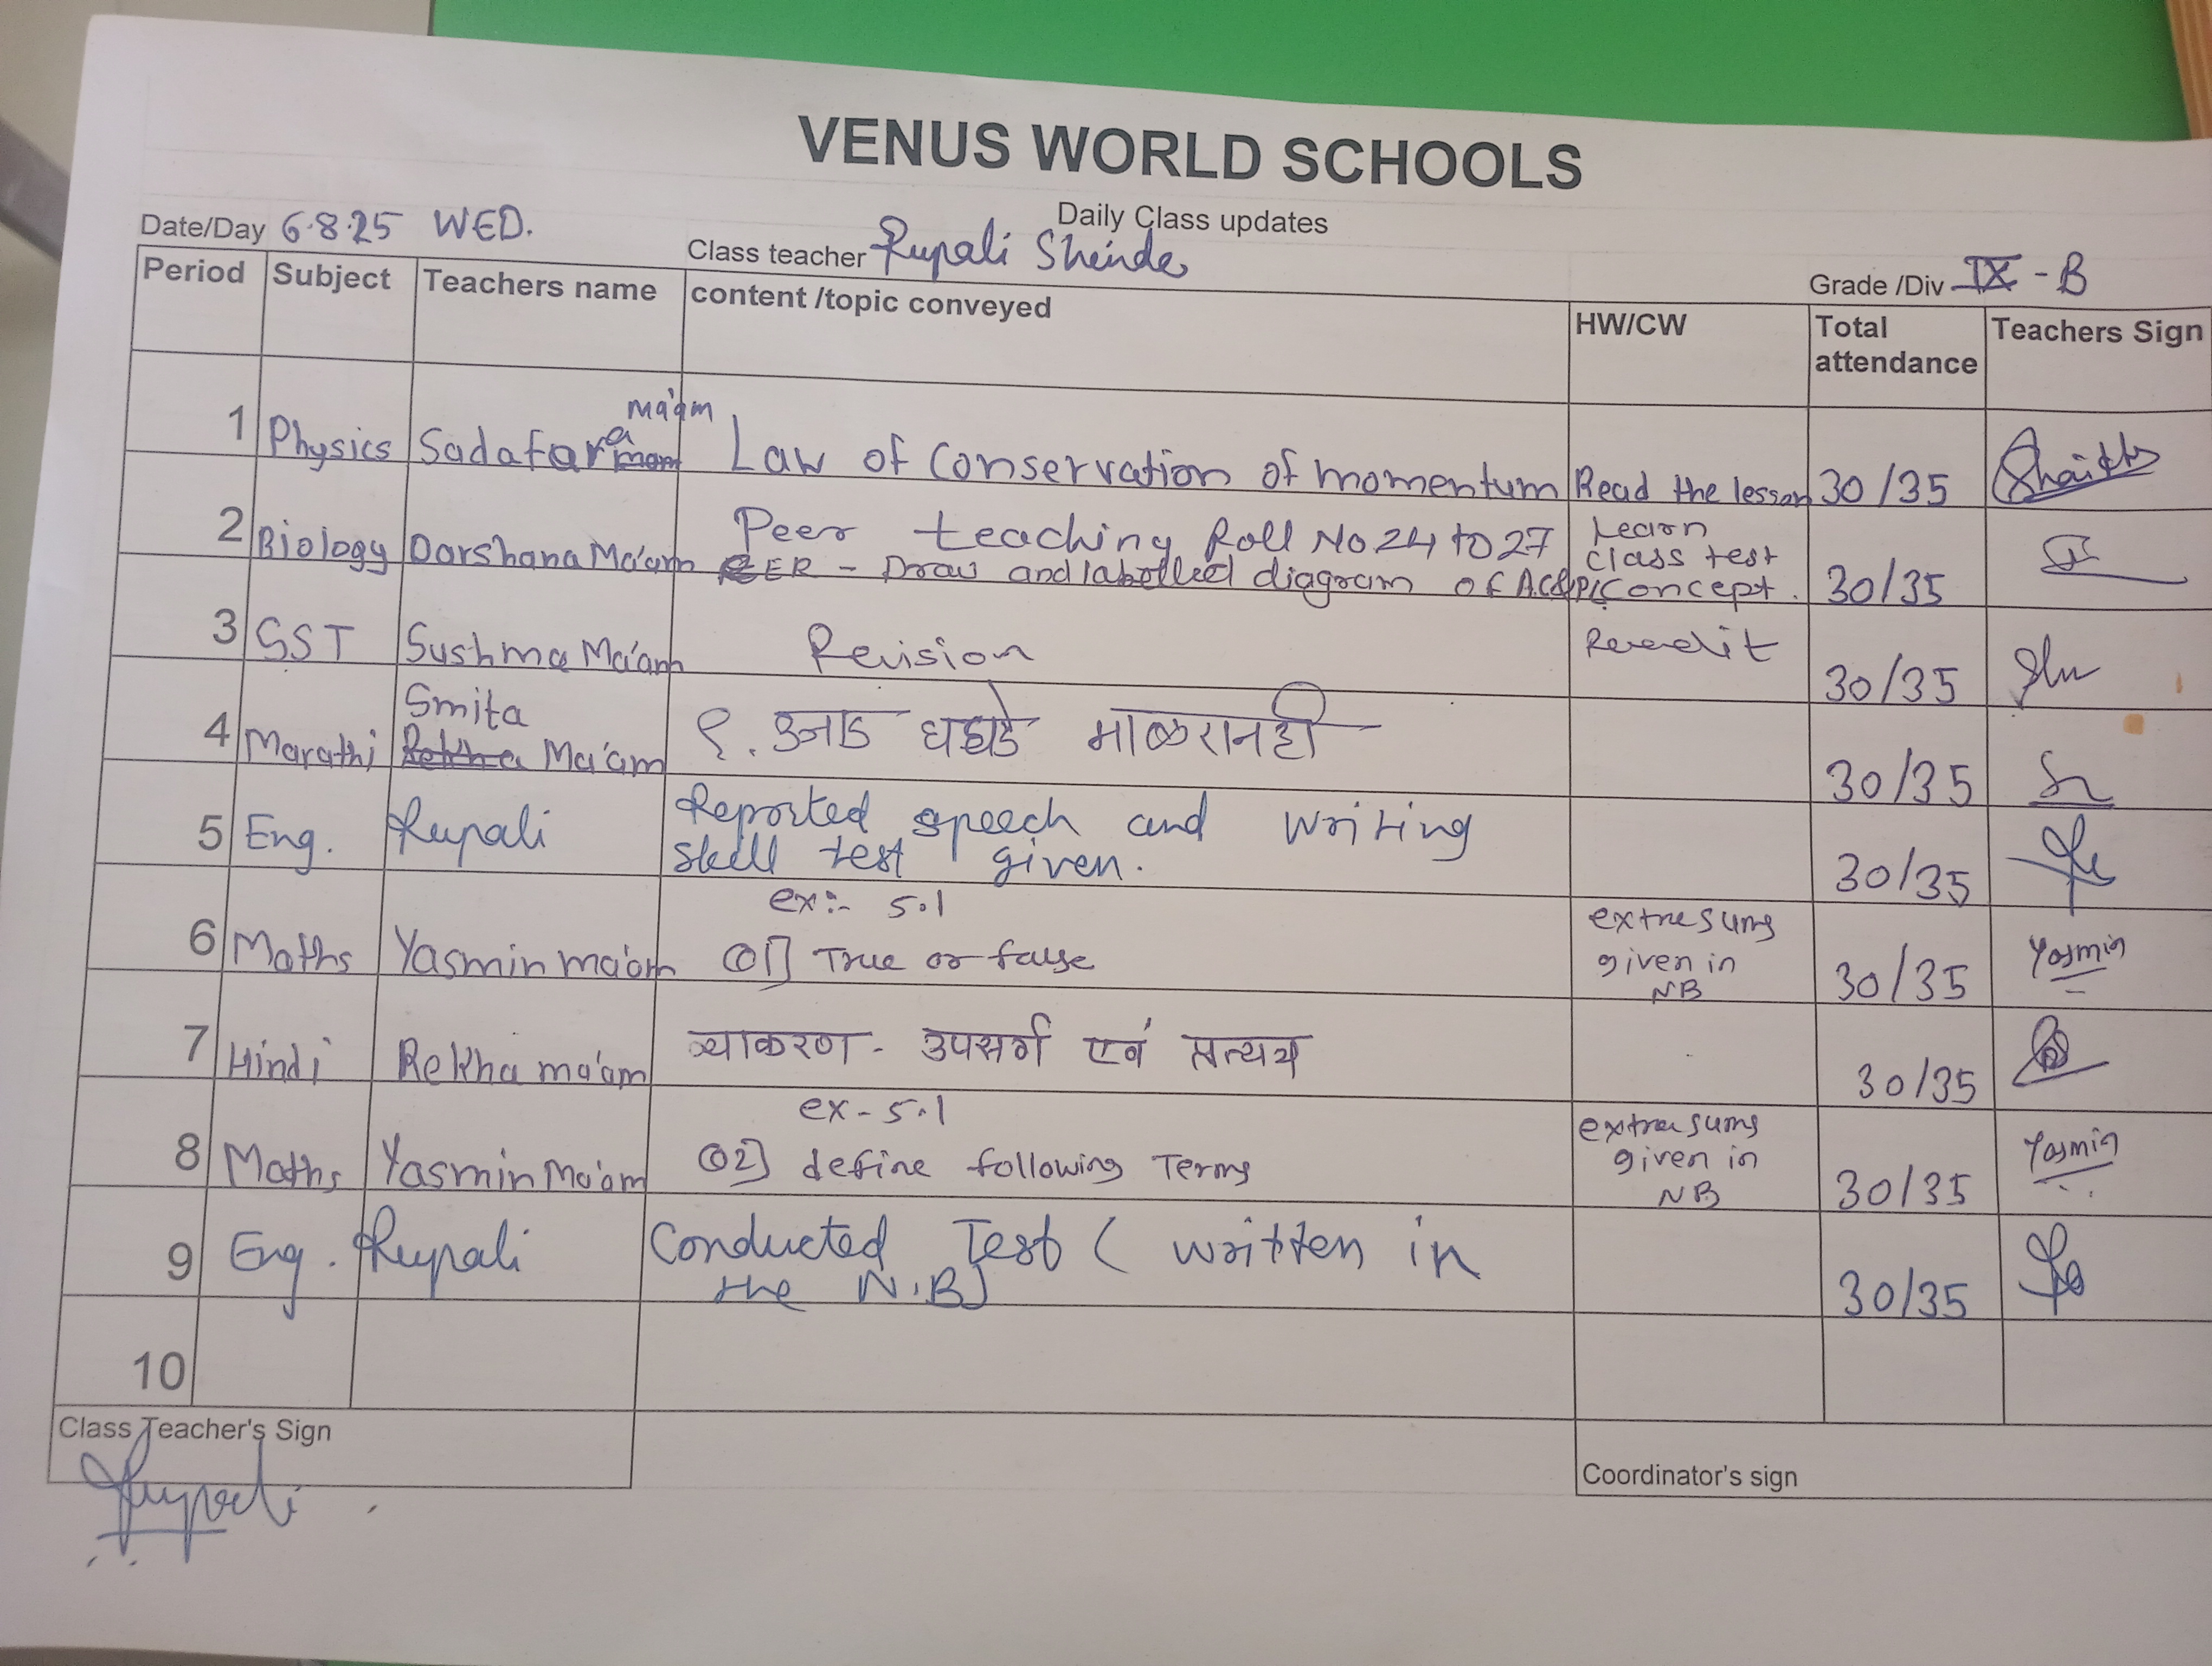 VENUS WORLD SCHOOLS
Daily Class updates
Date/Day 6.8.25 WED.
Class teacher Rupali Sheinde
Grade /Div IX - B
Period Subject Teachers name content /topic conveyed HW/CW Total attendance Teachers Sign
ma'am
1 Physics Sadafara Law of conservation of momentum Read the lesson 30/35 Shaikh
2 Biology Darshana Ma'am Peer teaching Roll No 24 to 27 Learn class test concept. 30/35
ER - Draw and labelled diagram of
3 SST Sushma Ma'am Revision Read it 30/35
4 Marathi Smita Ma'am १. उनाड 30/35
5 Eng. Rupali Reported speech and writing 30/35
skill test given.
ex:- 5.1
6 Maths Yasmin ma'am Q1] True or false extra sums given in NB 30/35 Yasmin
7 Hindi Rekha ma'am व्याकरण - उपसर्ग एवं 30/35
ex - 5.1
8 Maths Yasmin Ma'am Q2] define following Terms extra sums given in NB 30/35 Yasmin
9 Eng. Rupali Conducted Test ( written in 30/35
the N.B)
10
Class Teacher's Sign
Rupali
Coordinator's sign